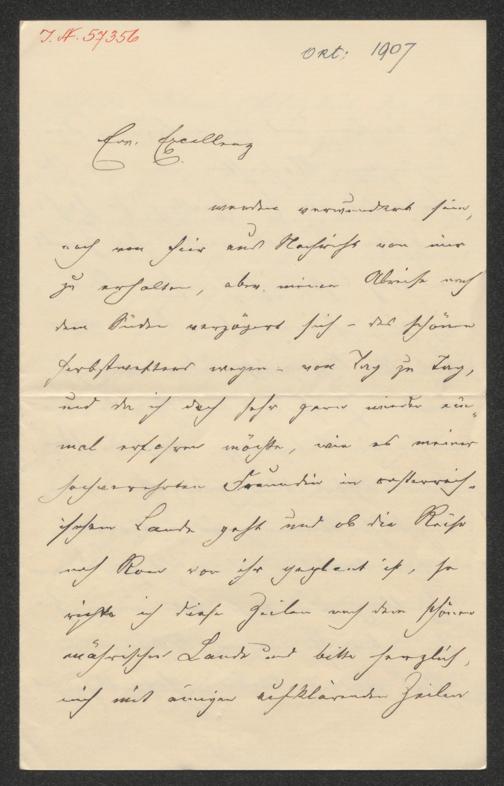 J.N. 57356
Okt: 1907
Eur. Excellenz
werden verwundert sein,
noch von hier aus Nachricht von mir
zu erhalten, aber meine Abreise nach
dem Süden verzögert sich - des schönen
Herbstwetters wegen - von Tag zu Tag,
und da ich doch sehr gern wieder ein-
mal erfahren möchte, wie es meiner
hochverehrten Freundin in oesterreich-
ischem Lande geht und ob die Reise
nach Rom von ihr geplant ist, so
richte ich diese Zeilen nach dem schönen
mährischen Lande und bitte herzlich,
mich mit einigen aufklärenden Zeilen